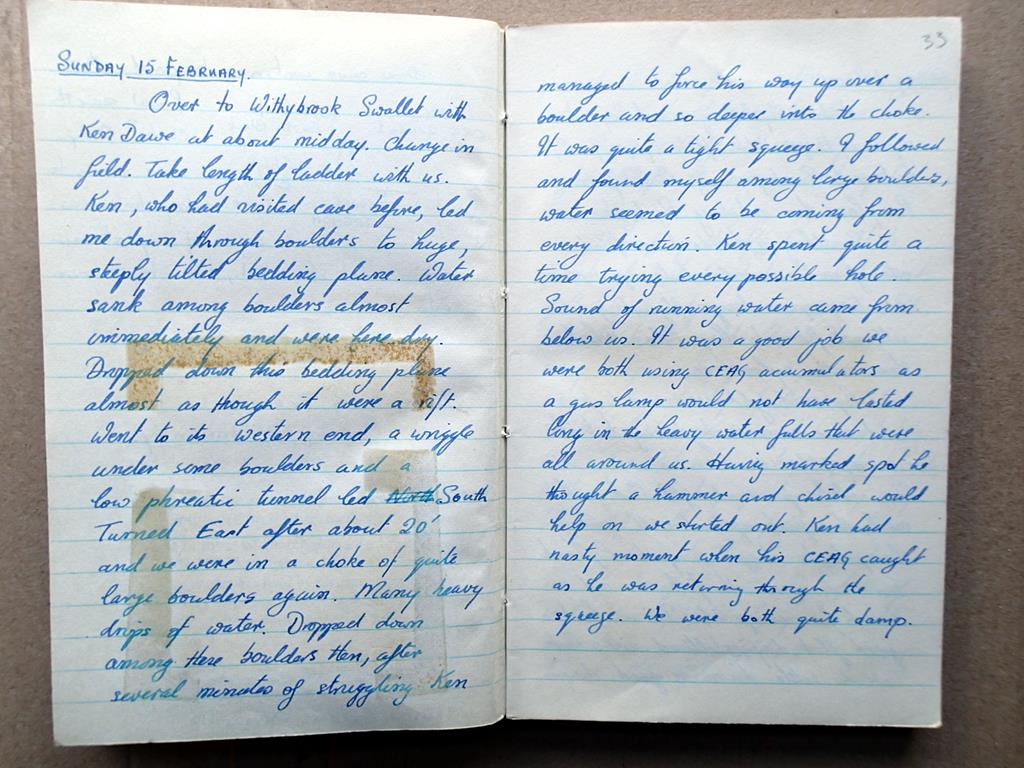 SUNDAY 15 FEBRUARY.
Over to Withybrook Swallet with
Ken Dawe at about midday. Change in
field. Take length of ladder with us.
Ken, who had visited cave before, led
me down through boulders to huge,
steeply tilted bedding plane. Water
sank among boulders almost
immediately and were here dry.
Dropped down this bedding plane
almost as though it were a rift.
Went to its western end, a wriggle
under some boulders and a
low phreatic tunnel led North South
Turned East after about 20'
and we were in a choke of quite
large boulders again. Many heavy
drips of water. Dropped down
among these boulders then, after
several minutes of struggling Ken
33
managed to force his way up over a
boulder and so deeper into the choke.
It was quite a tight squeeze. I followed
and found myself among large boulders,
water seemed to be coming from
every direction. Ken spent quite a
time trying every possible hole.
Sound of running water came from
below us. It was a good job we
were both using CEAG accumulators as
a gas lamp would not have lasted
long in the heavy water falls that were
all around us. Having marked spot he
thought a hammer and chisel would
help on we started out. Ken had
nasty moment when his CEAG caught
as he was returning through the
squeeze. We were both quite damp.